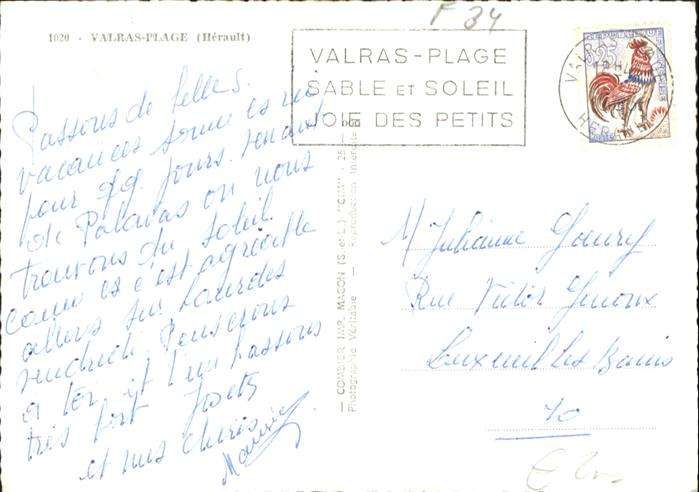 F 34
1020 - VALRAS-PLAGE (Hérault)
VALRAS-PLAGE
SABLE ET SOLEIL
JOIE DES PETITS
Passons de belles
vacances sommes ici
pour qq. jours. venant
de Palavas ou nous
trouvons du soleil
comme ici c'est agréable
allons sur Lourdes
vendredi. Pensons
à toi et t'
très fort
et
— COMBIER IMP. MACON (S.-et-L.) "CIM"
Photographie Véritable — Reproduction Interdite
M Julianne
Rue Victor Genoux
Luxeuil les Bains
70